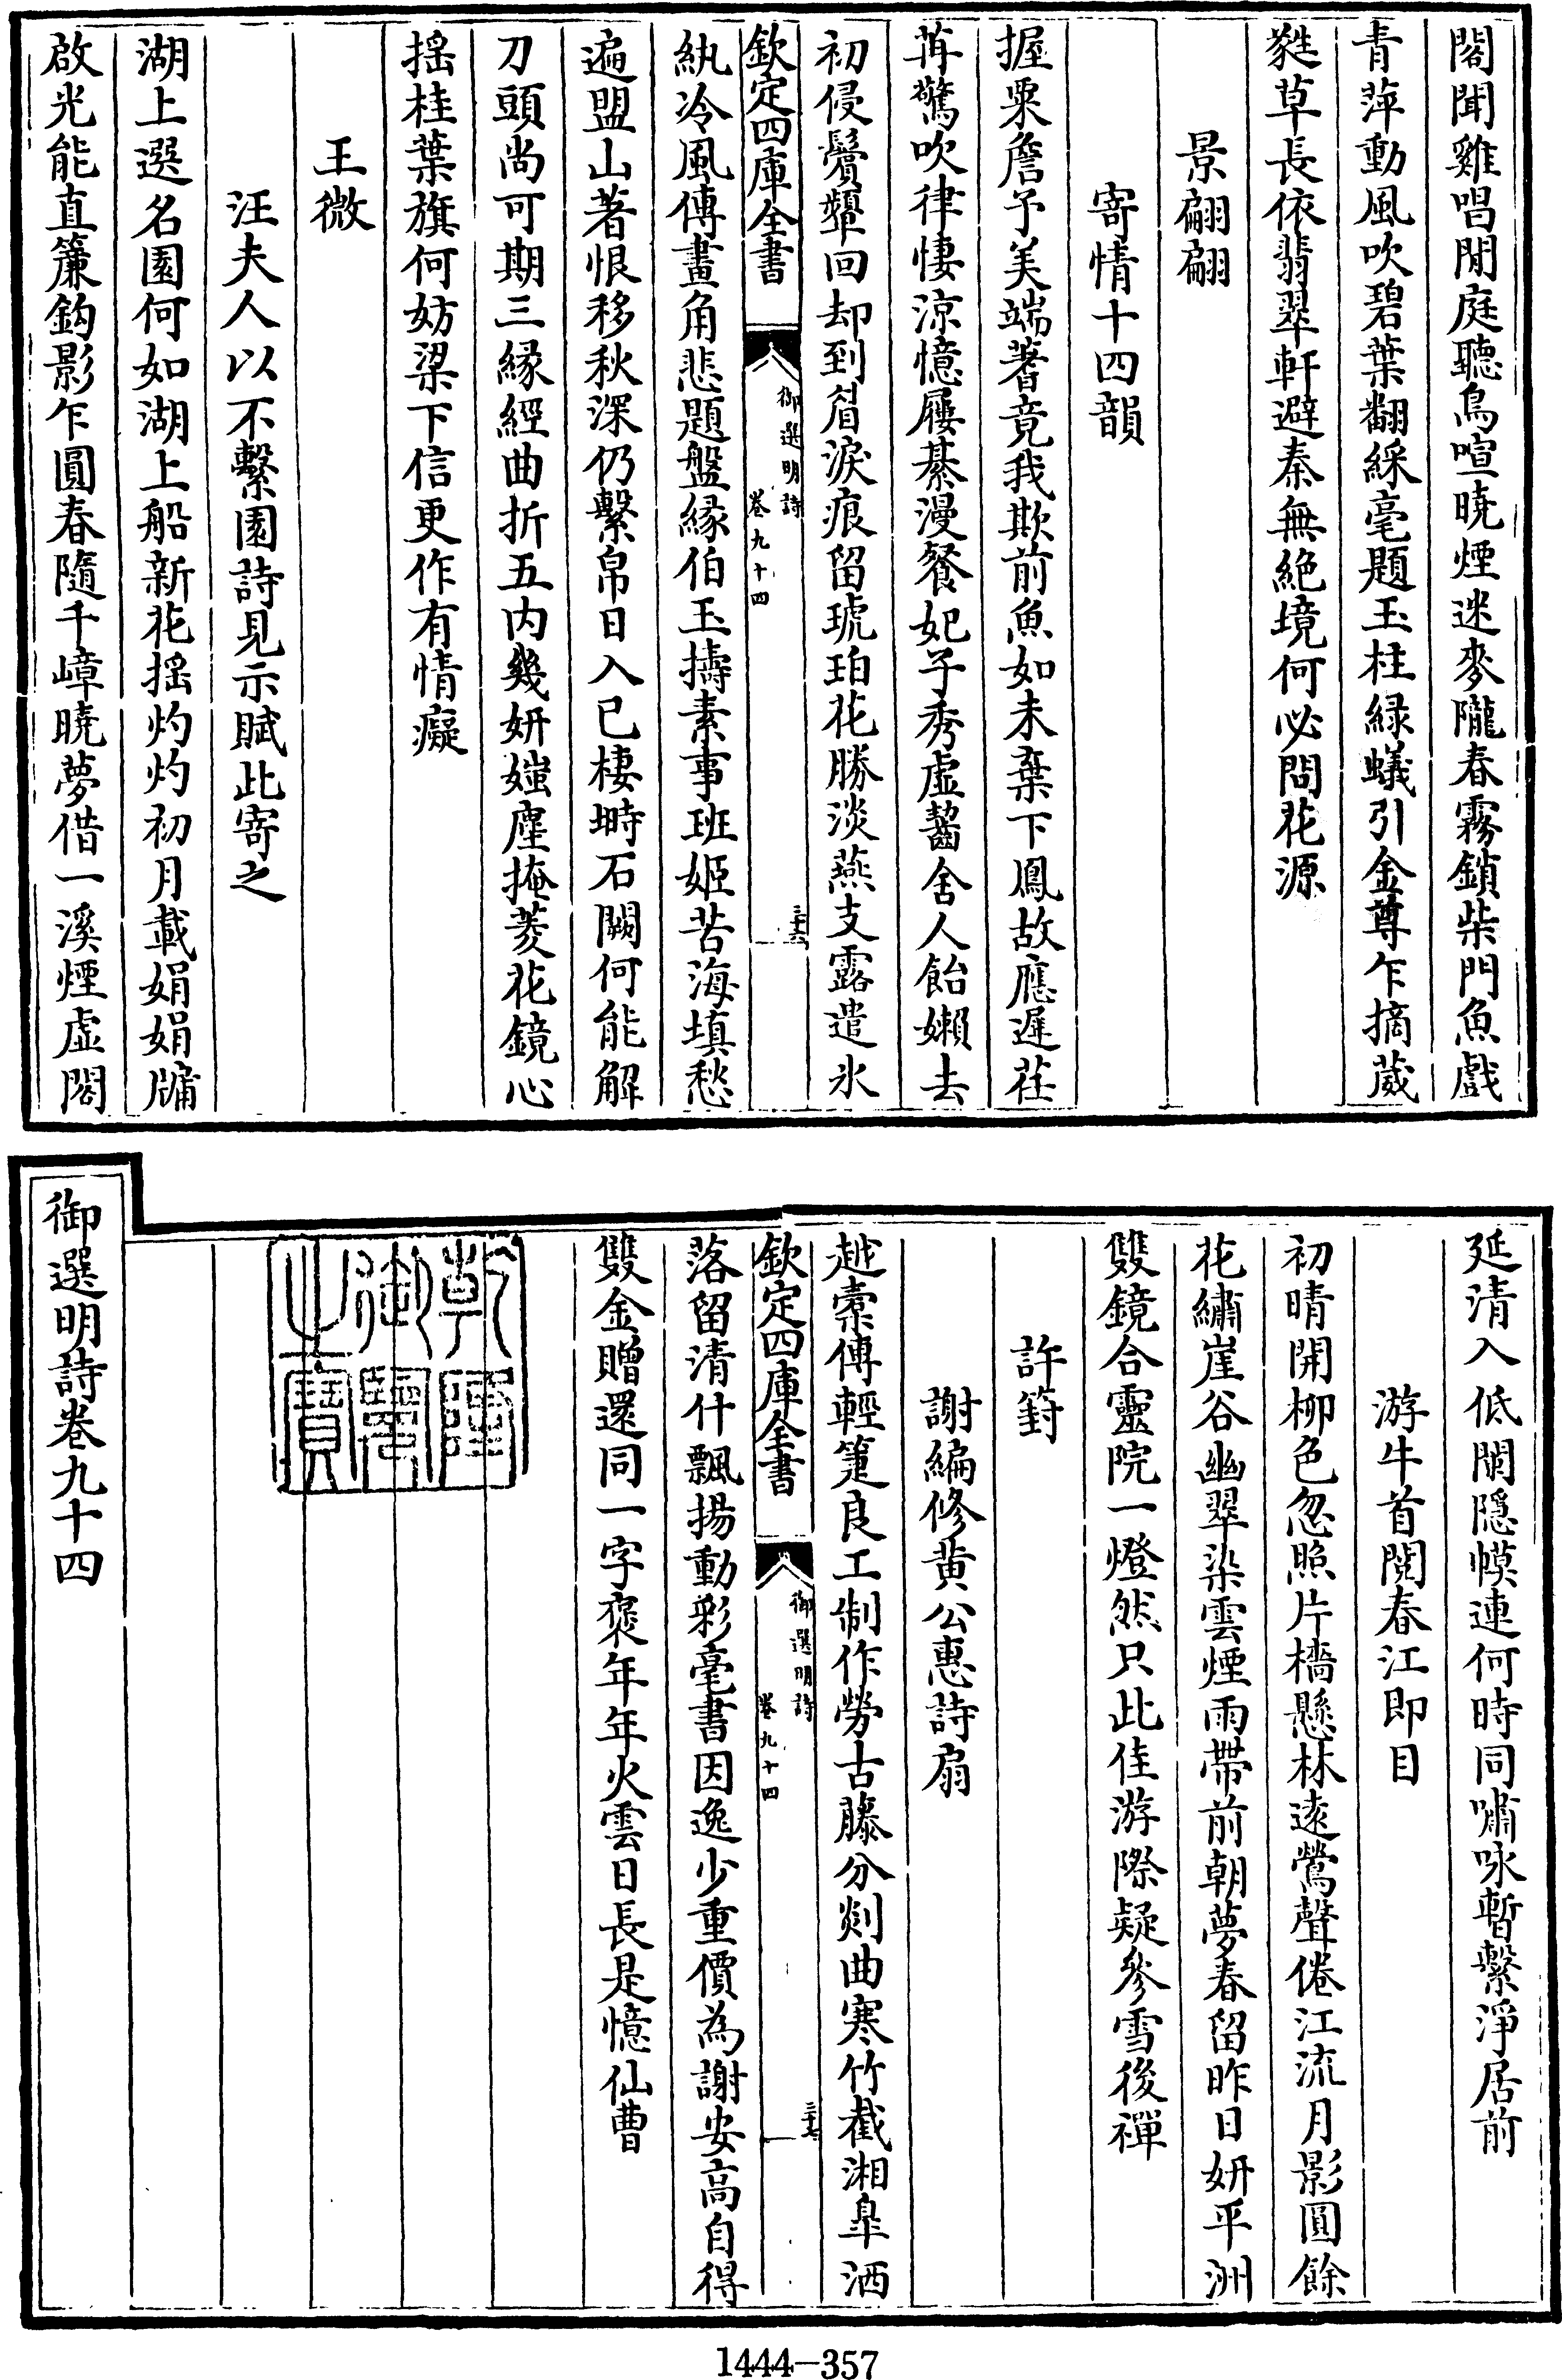 閣聞雞唱閒庭聽鳥喧曉煙迷麥隴春霧鎖柴門魚戲
青萍動風吹碧葉翻綵毫題玉柱緑蟻引金尊乍摘葳
蕤草長依翡翠軒避秦無絶境何必問花源
景翩翩
寄情十四韻
握粟詹予美端蓍竟我欺前魚如未棄下鳳故應遲荏
苒驚吹律悽涼憶屨綦漫餐妃子秀虛齧舍人飴嬾去
初侵鬢顰回却到眉淚痕留琥珀花勝淡燕支露遣氷
欽定四庫全書
御選明詩
卷九十四
三十六
紈冷風傳畫角悲題盤緣伯玉擣素事班姬苦海填愁
遍盟山著恨移秋深仍繫帛日入已棲塒石闕何能解
刀頭尚可期三緣經曲折五内幾妍媸塵掩菱花鏡心
摇桂葉旗何妨梁下信更作有情癡
王微
汪夫人以不繫園詩見示賦此寄之
湖上選名園何如湖上船新花摇灼灼初月載娟娟牖
啟光能直簾鈎影乍圓春隨千嶂曉夢借一溪煙虛閣
延清入低闌隱幙連何時同嘯咏暫繫淨居前
游牛首閱春江即目
初晴開柳色忽照片檣懸林遠鶯聲倦江流月影圓餘
花繡崖谷幽翠染雲煙雨帶前朝夢春留昨日妍平洲
雙鏡合靈院一燈然只此佳游際疑參雪後禪
許䇓
謝編修黄公惠詩扇
越橐傳輕箑良工制作勞古藤分剡曲寒竹截湘臯洒
欽定四庫全書
御選明詩
卷九十四
三十七
落留清什飄揚動彩毫書因逸少重價為謝安高自得
雙金贈還同一字褒年年火雲日長是憶仙曹
乾隆
御覽
之寶
御選明詩卷九十四
1444-357